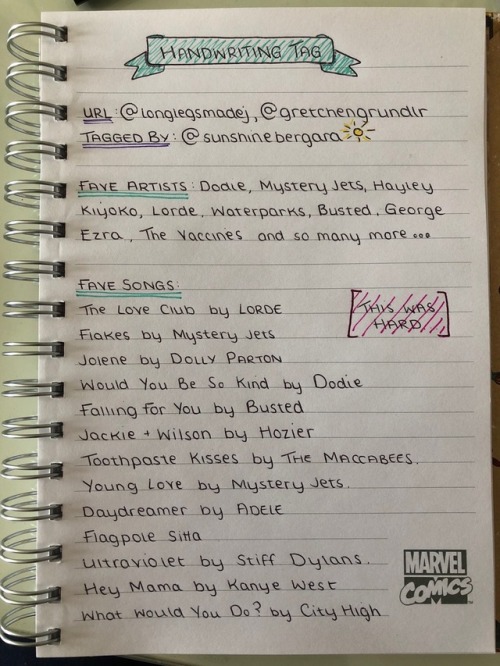 HANDWRITING TAG
URL: @longlegsmadej, @gretchengrundlr
TAGGED BY: @sunshinebergara
FAVE ARTISTS: Dodie, Mystery Jets, Hayley
Kiyoko, Lorde, Waterparks, Busted, George
Ezra, The Vaccines and so many more...
FAVE SONGS:
The Love Club by LORDE
THIS WAS
HARD
Flakes by Mystery Jets
Jolene by DOLLY PARTON
Would You Be So Kind by Dodie
Falling For You by Busted
Jackie + Wilson by Hozier
Toothpaste Kisses by THE MACCABEES.
Young Love by Mystery Jets.
Daydreamer by ADELE
Flagpole Sitta
Ultraviolet by Stiff Dylans.
Hey Mama by Kanye West
What Would You Do? by City High
MARVEL
COMICS